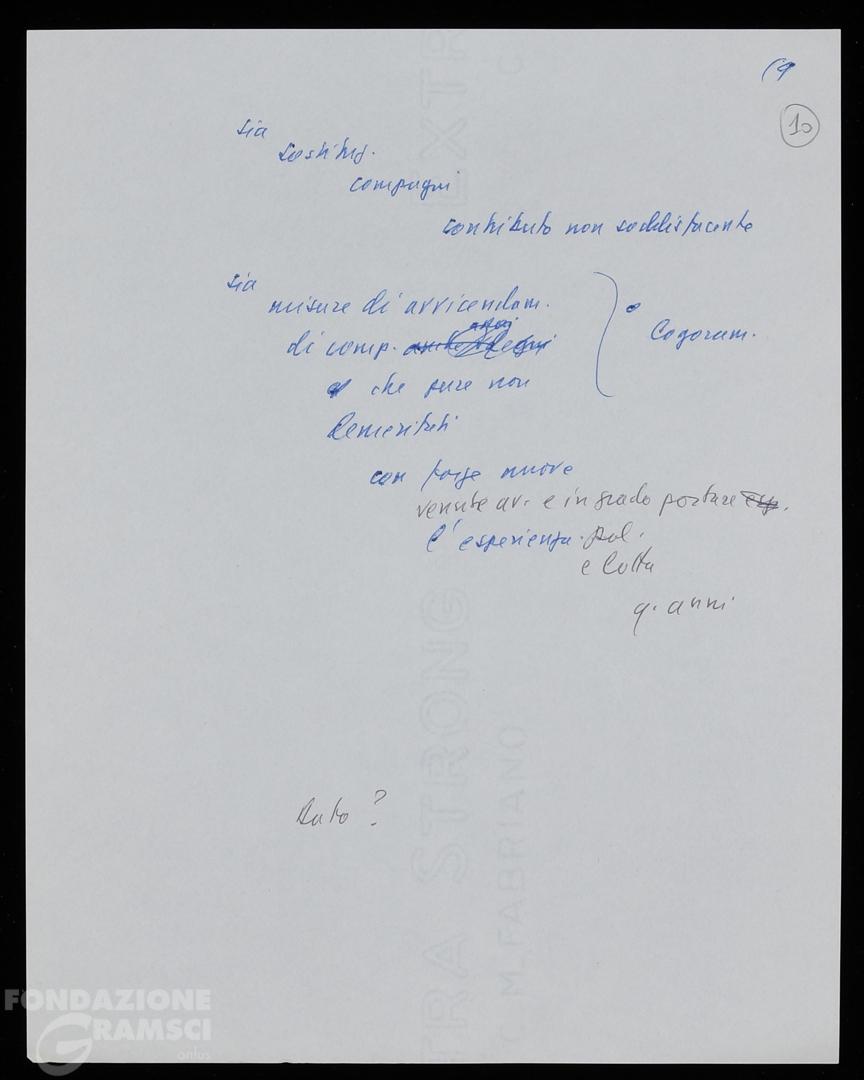 10
sia
sostituz.
compagni
contributo non soddisfacente
sia
misure di avvicendam.
anzi
di comp.
Logoram.
che pure non
demeritati
con forze nuove
venute av. e in grado portare esp.
l'esperienza pol.
e lotta
q. anni
Auto?
EXTRA STRONG
C. M. FABRIANO
FONDAZIONE
GRAMSCI
onlus